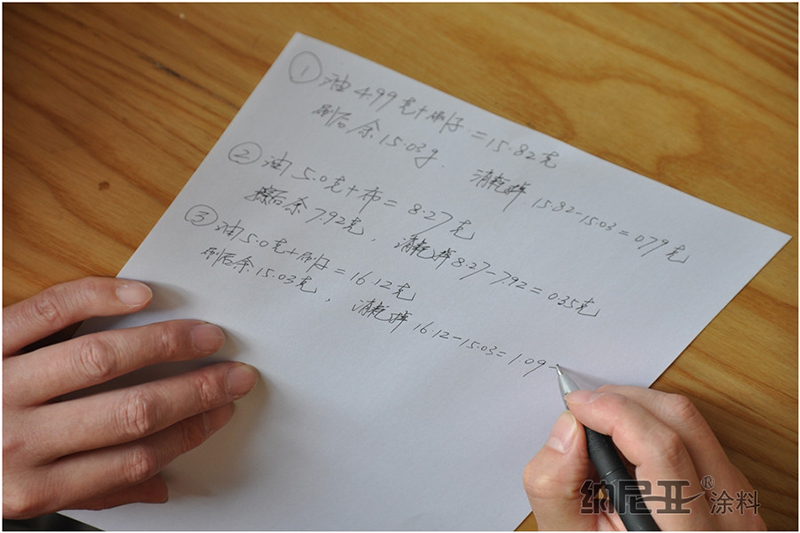 ① 油4.99克+刷子=15.82克
刷后余15.03g. 消耗掉 15.82-15.03=0.79克
② 油5.0克+布=8.27克
擦后余7.92克, 消耗掉8.27-7.92=0.35克
③ 油5.0克+刷子=16.12克
刷后余15.03克, 消耗掉 16.12-15.03=1.09
纳尼亚®涂料